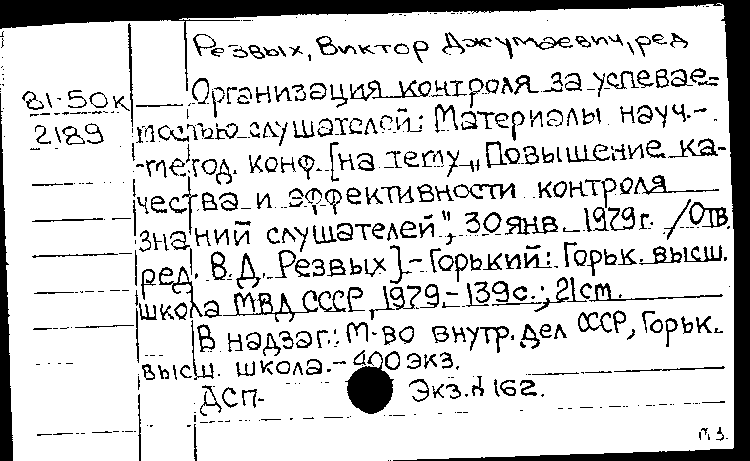 Резвых, Виктор Джумаевич, ред
81-50к Организация контроля за успевае=
2189 мостью слушателей: Материалы науч.-
-метод. конф. [на тему „Повышение ка-
чества и эффективности контроля
знаний слушателей", 30 янв. 1979г. /Отв.
ред. В.Д. Резвых].- Горький: Горьк. высш.
школа МВД СССР, 1979.- 139с.; 21см.
В надзаг.: М-во внутр. дел СССР, Горьк.
высш. школа.- 400 экз.
ДСП- Экз.№162.